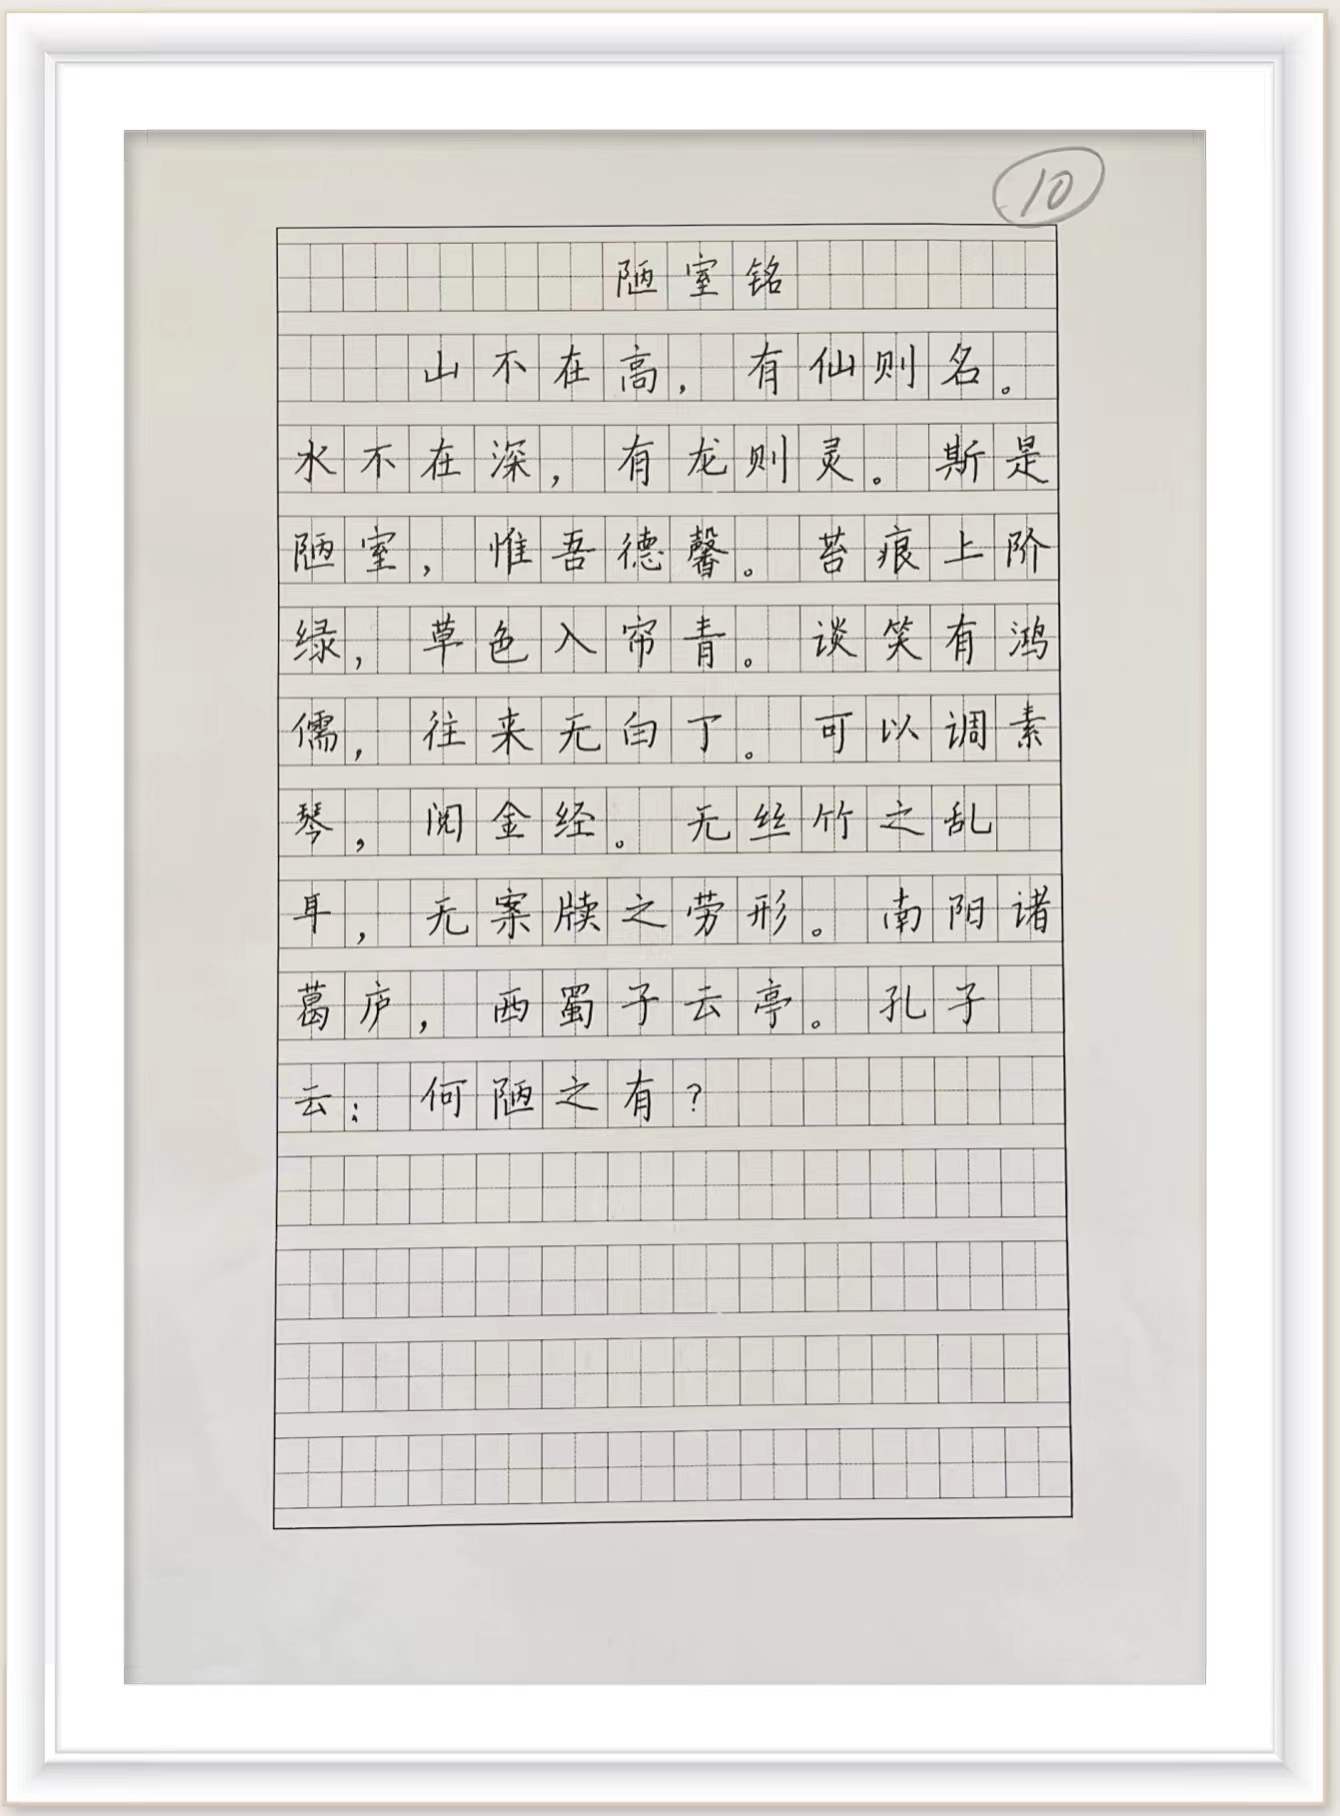 10
陋室铭
山不在高，有仙则名。
水不在深，有龙则灵。斯是
陋室，惟吾德馨。苔痕上阶
绿，草色入帘青。谈笑有鸿
儒，往来无白丁。可以调素
琴，阅金经。无丝竹之乱
耳，无案牍之劳形。南阳诸
葛庐，西蜀子云亭。孔子
云：何陋之有？